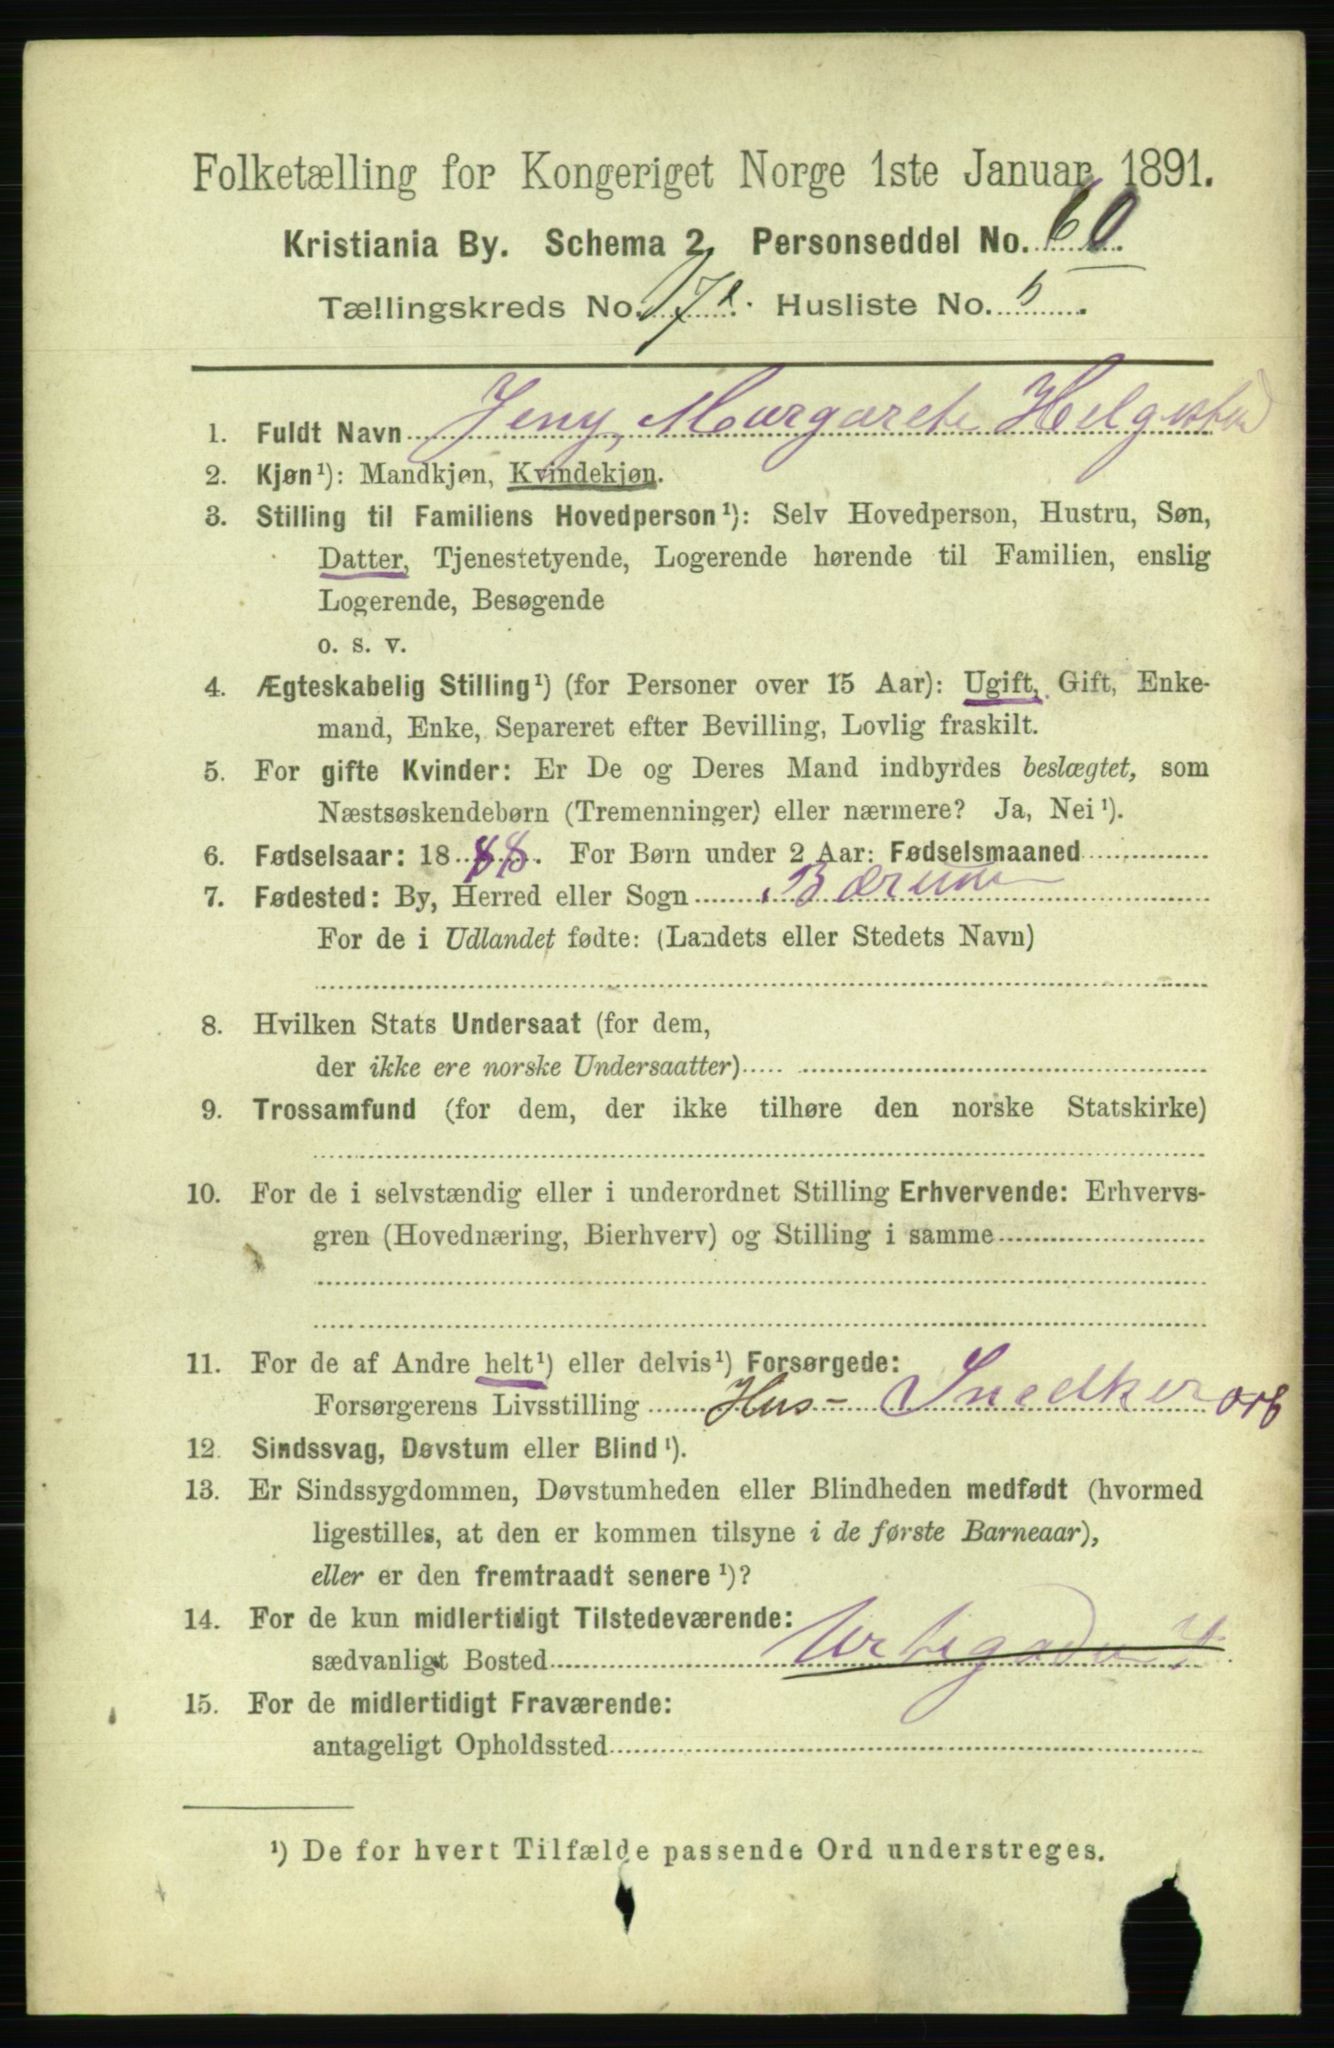 Folketælling for Kongeriget Norge 1ste Januar 1891.
Kristiania By. Schema 2. Personseddel No. 60.
Tællingskreds No. 17 Husliste No. 5.
1. Fuldt Navn Jeny Margarete
2. Kjøn¹): Mandkjøn, Kvindekjøn.
3. Stilling til Familiens Hovedperson¹): Selv Hovedperson, Hustru, Søn,
Datter, Tjenestetyende, Logerende hørende til Familien, enslig
Logerende, Besøgende
o. s. v.
4. Ægteskabelig Stilling¹) (for Personer over 15 Aar): Ugift, Gift, Enke-
mand, Enke, Separeret efter Bevilling, Lovlig fraskilt.
5. For gifte Kvinder: Er De og Deres Mand indbyrdes beslægtet, som
Næstsøskendebørn (Tremenninger) eller nærmere? Ja, Nei¹).
6. Fødselsaar: 1888. For Børn under 2 Aar: Fødselsmaaned
7. Fødested: By, Herred eller Sogn Bærum
For de i Udlandet fødte: (Landets eller Stedets Navn)
8. Hvilken Stats Undersaat (for dem,
der ikke ere norske Undersaatter)
9. Trossamfund (for dem, der ikke tilhøre den norske Statskirke)
10. For de i selvstændig eller i underordnet Stilling Erhvervende: Erhvervs-
gren (Hovednæring, Bierhverv) og Stilling i samme
11. For de af Andre helt¹) eller delvis¹) Forsørgede:
Forsørgerens Livsstilling Hus- Snedker arb
12. Sindssvag, Døvstum eller Blind¹).
13. Er Sindssygdommen, Døvstumheden eller Blindheden medfødt (hvormed
ligestilles, at den er kommen tilsyne i de første Barneaar),
eller er den fremtraadt senere¹)?
14. For de kun midlertidigt Tilstedeværende:
sædvanligt Bosted Urtegaden
15. For de midlertidigt Fraværende:
antageligt Opholdssted
¹) De for hvert Tilfælde passende Ord understreges.